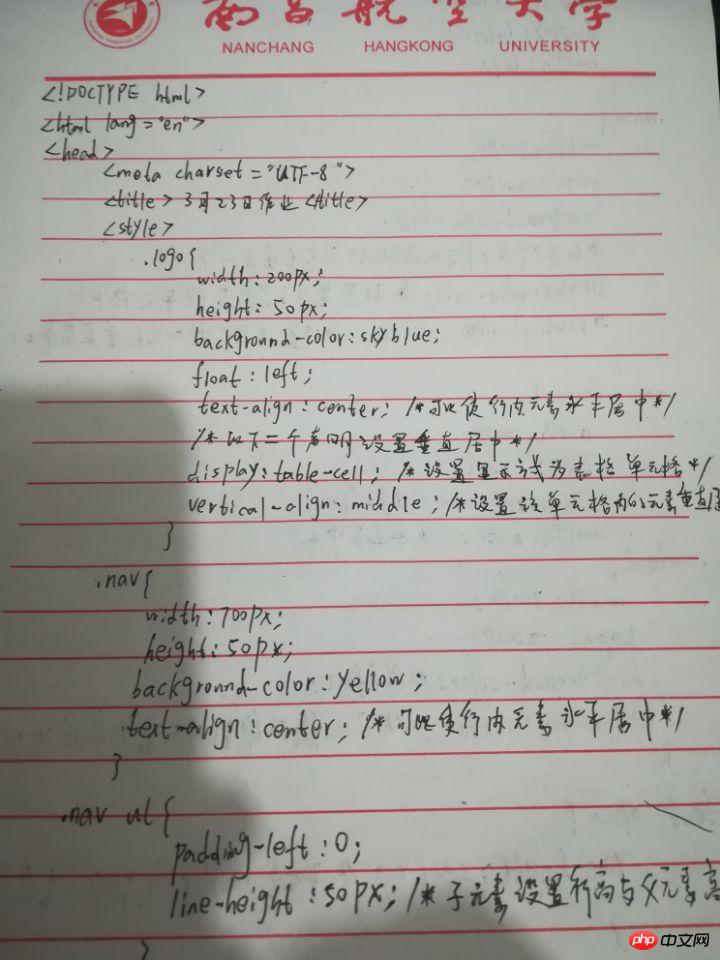 南昌航空大学
NANCHANG HANGKONG UNIVERSITY
<!DOCTYPE html>
<html lang="en">
<head>
<meta charset="UTF-8">
<title>3月23日作业<title>
<style>
.logo{
width:200px;
height:50px;
background-color:skyblue;
float:left;
text-align:center; /*可以使行内元素水平居中*/
/*以下二个声明设置垂直居中*/
display:table-cell; /*设置显示方式为表格单元格*/
vertical-align:middle; /*设置该单元格内的元素垂直居
}
.nav{
width:700px;
height:50px;
background-color:yellow;
text-align:center; /*可以使行内元素水平居中*/
}
.nav ul{
padding-left:0;
line-height:50px; /*子元素设置行高与父元素高
}
php中文网